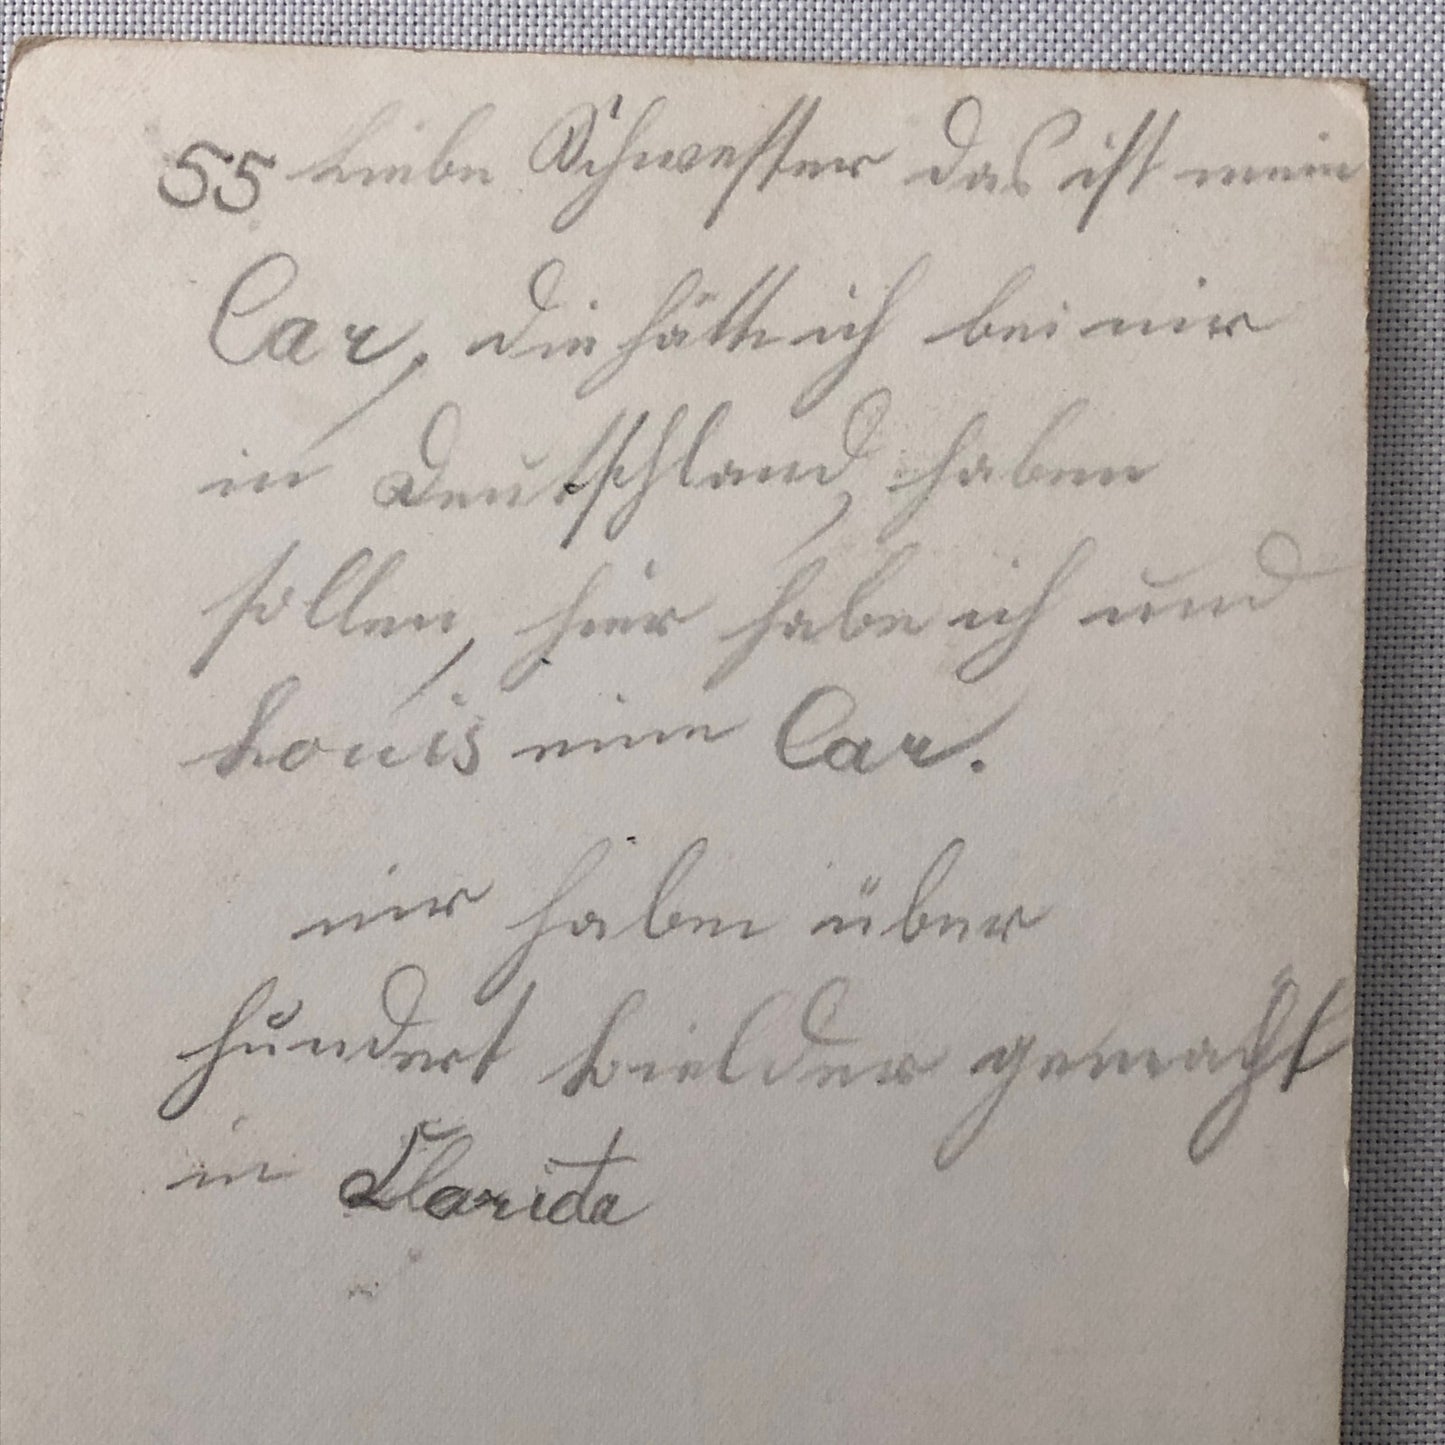 55 Liebe Schwester das ist mein
Car, die hätte ich bei mir
in Deutschland, haben
sollen, hier habe ich und
Louis eine Car.
wir haben über
hundert bielder gemacht
in Florida